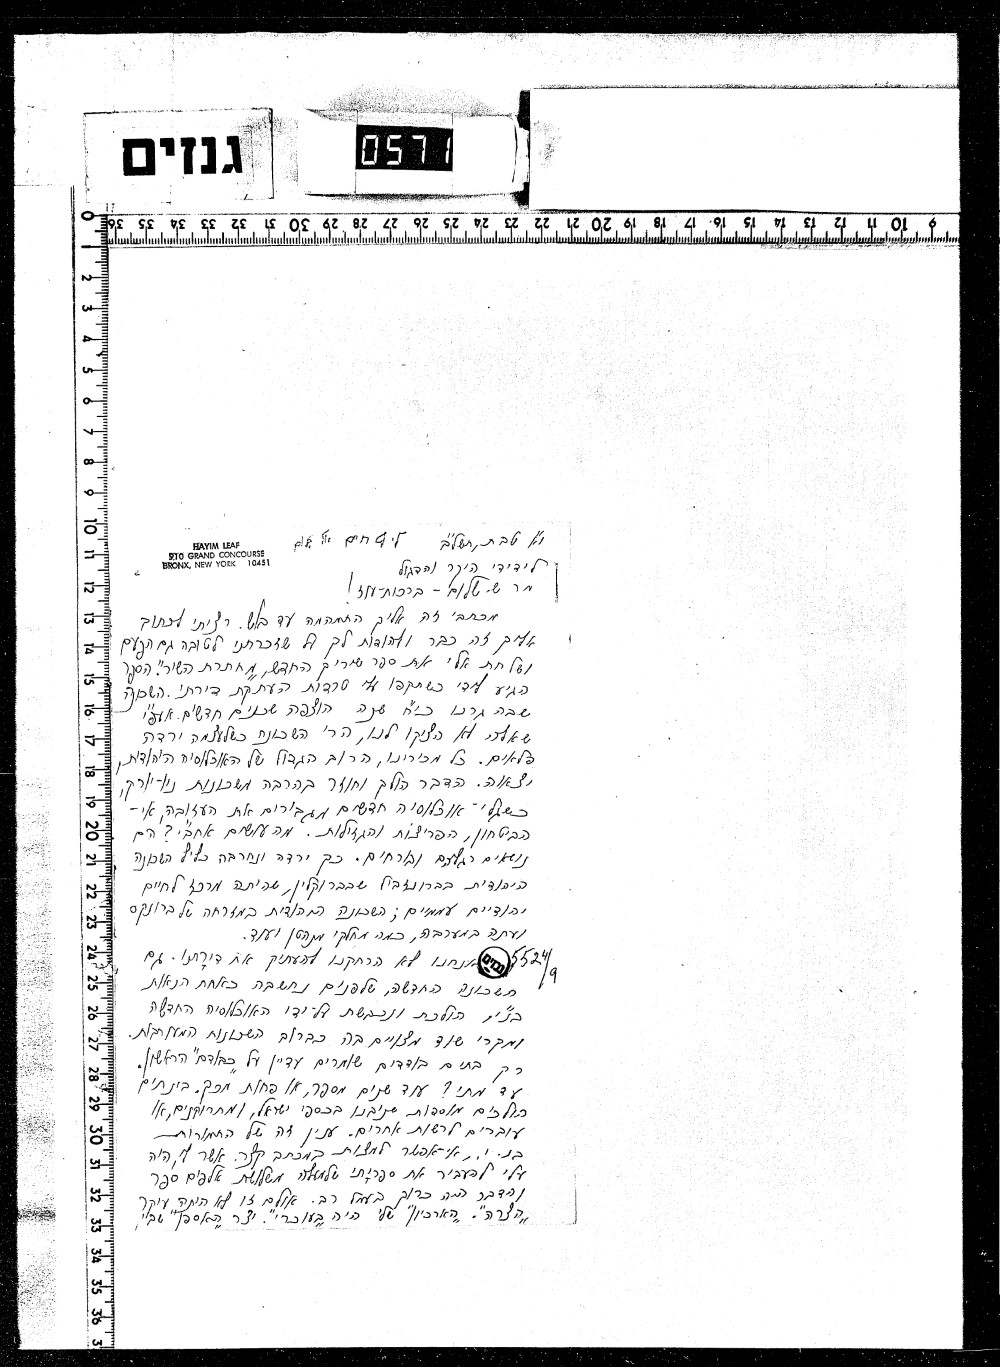 גנזים
0571
HAYIM LEAF
910 GRAND CONCOURSE
BRONX, NEW YORK 10451
י"א טבת, תשל"ב
לידידי היקר והדגול
מר ש. שלום – ברכות-עוז!
מכתבי זה אליך התמהמה עד בוש. רציתי לכתוב
אליך זה כבר ולהודות לך על שזכרתני לטובה גם הפעם
ושלחת אלי את ספר שיריך החדש, "מחתרת השיר". הספר
הגיע לידי כשתקפו עלי טרדות העתקת דירתי. השכונה
שבה גרנו כ"ח שנה הוצפה שכנים חדשים. אעפ"י
שאלה לא הציקו לנו, הרי השכונה כשלעצמה ירדה
פלאים. כל מכירינו, הרוב הגדול של האוכלוסיה היהודית,
יצאוה. הדבר הולך וחוזר בהרבה משכונות ניו-יורק,
כשגלי-אוכלוסיה חדשים מגבירים את העזובה, אי-
הבטחון, הפריצות והגזלות. מה עושים אחב"י? הם
נושאים רגליהם ובורחים. כך ירדה ונחרבה כליל השכונה
היהודית בברונזביל שבברוקלין, שהיתה מרכז לחיים
יהודיים עממיים; השכונה היהודית במזרחה של ברונקס
ועתה במערבה, כמה מחלקי מנהטן ועוד.
5524/9
גנזים
אנחנו לא הרחקנו להעתיק את דירתנו. גם
השכונה החדשה, שלפנים נחשבה כאחת הנאות
בעיר הולכת ונכבשת על-ידי האוכלוסיה החדשה
ומקרי שוד מצויים בה כברוב השכונות המעורבות.
רק בתים בודדים שומרים עדיין על "כבודם" הראשון.
עד מתי? עוד שנים מספר, או פחות מכך. בינתים
הולכים מוספות שניבנו בכספי ישראל, ומתרוקנים, או
עוברים לרשות אחרים. ענין זה של התמורות
בנ. י., אי-אפשר למצות במכתב קצר. אשר לי, היה
עלי להעביר את ספריתי שלמעלה משלושת אלפים ספר
והדבר היה כרוך בעמל רב. אולם זו לא היתה עיקר
"הצרה". "הארכיון" שלי היה "בעוכרי". יצר "האספן" שבי,